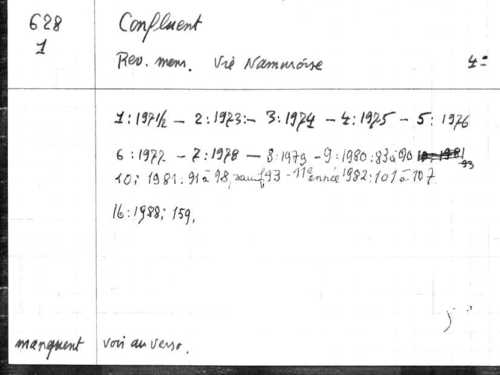 628 Confluent
1
Rev. mens. Vie Namuroise 4º
1:1971/2 – 2:1973:– 3:1974 – 4:1975 – 5:1976
6:1977 – 7:1978 – 8:1979 – 9:1980:83 à 90
10: 1981:91 à 98, sauf 93 – 11e année 1982:101 à 107
93
16:1988: 159.
manquent voir au verso.